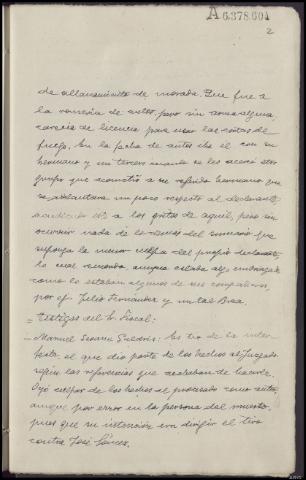 A6.378.601
2
de allanamiento de morada. Que fue a
la reunión de autos pero sin arma alguna,
carecía de licencia para usar las cortas de
fuego. En la fecha de autos iba él con su
hermano y un tercero cuando se les acercó otro
grupo que acometió a su referido hermano que
se adelantara un poco respecto al declarante
acudiendo éste a los gritos de aquél, pero sin
ocurrir nada de lo demás del sumario que
suponga la menor culpa del propio declarante
lo cual recuerda, aunque estaba algo embriagado
como lo estaban algunos de sus compañeros,
por ej. Julio Fernández y un tal Brea.
= Testigos del Sr. Fiscal:
- Manuel Seoane : Es tío de la
el que dio parte de los hechos al Juzgado
según las referencias que acababan de hacerle.
Oyó culpar de los hechos al procesado como autor,
aunque por error en la persona del muerto,
pues que su intención era dirigir el tiro
contra José